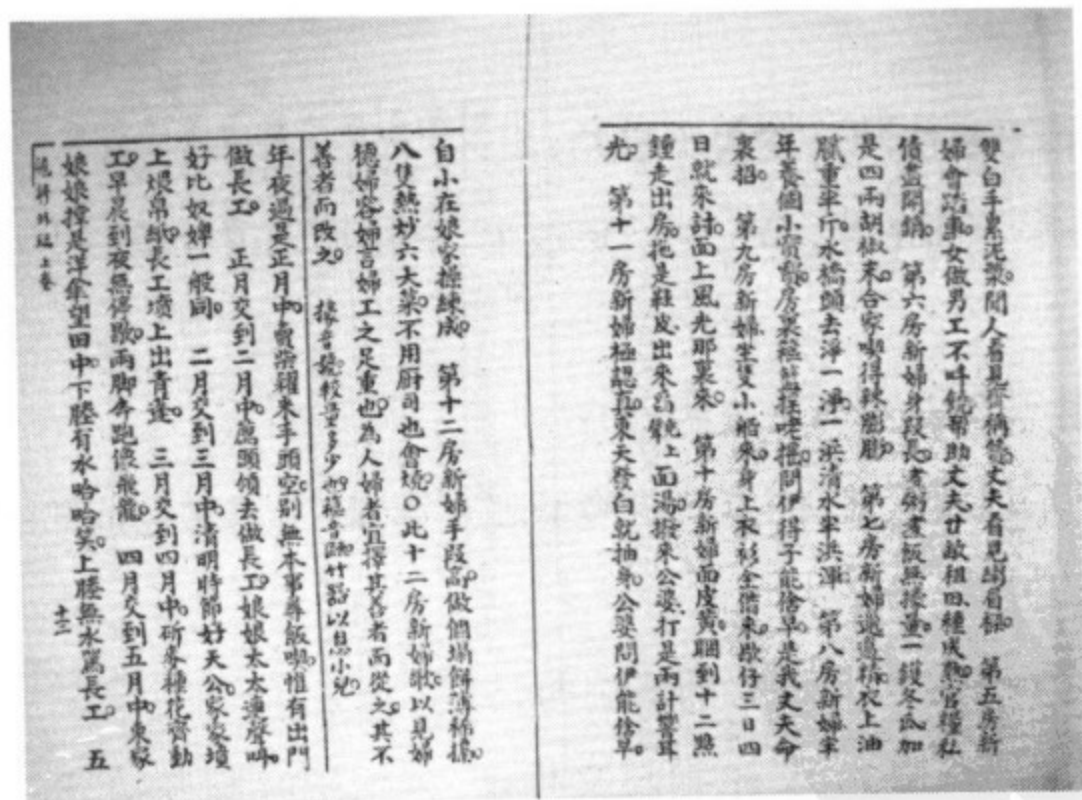 雙白手累泥漿閒人看見齊稱讚丈夫看見 第五房新
婦會當事女做男工不吽鏡幫助丈夫廿畝租田種成熟官糧私
債盡開銷 第六房新婦身段長煮粥煮飯無揆量一鑊冬瓜加
是四兩胡椒末合家喫得辣膨膨 第七房新婦邋遢精衣上油
膩重半斤水橋頭去淨一淨一浜清水牢洪渾 第八房新婦牢
年養個小寶房裏問伊得子能倷早是我丈夫命
裏招 第九房新婦坐隻小船來身上衣衫全借來歇仔三日四
日就來討面上風光那裏來 第十房新婦面皮黃睏到十二點
鐘走出房拖是鞋皮出來上面湯搬來公婆打是兩計響耳
光 第十一房新婦極認真東天發白就抽身公婆問伊能倷早
自小在娘家操練成 第十二房新婦手段高做個塌餅薄稀
八隻熱炒六大菜不用廚司也會燒〇此十二房新婦歌以見婦
德婦容婦言婦工之足重也為人婦者宜擇其善者而從之其不
善者而改之
年夜過是正月中賣柴糴米手頭空別無本事尋飯喫惟有出門
做長工 正月交到二月中薦頭領去做長工娘娘太太連聲叫
好比奴婢一般同 二月交到三月中清明時節好天公家家墳
上煨帛紙長工墳上出青蓬 三月交到四月中斫麥種花齊動
工早晨到夜無停歇兩腳奔跑像飛龍 四月交到五月中東家
娘娘撐是洋傘望田中下塍有水哈哈笑上塍無水罵長工 五
十二